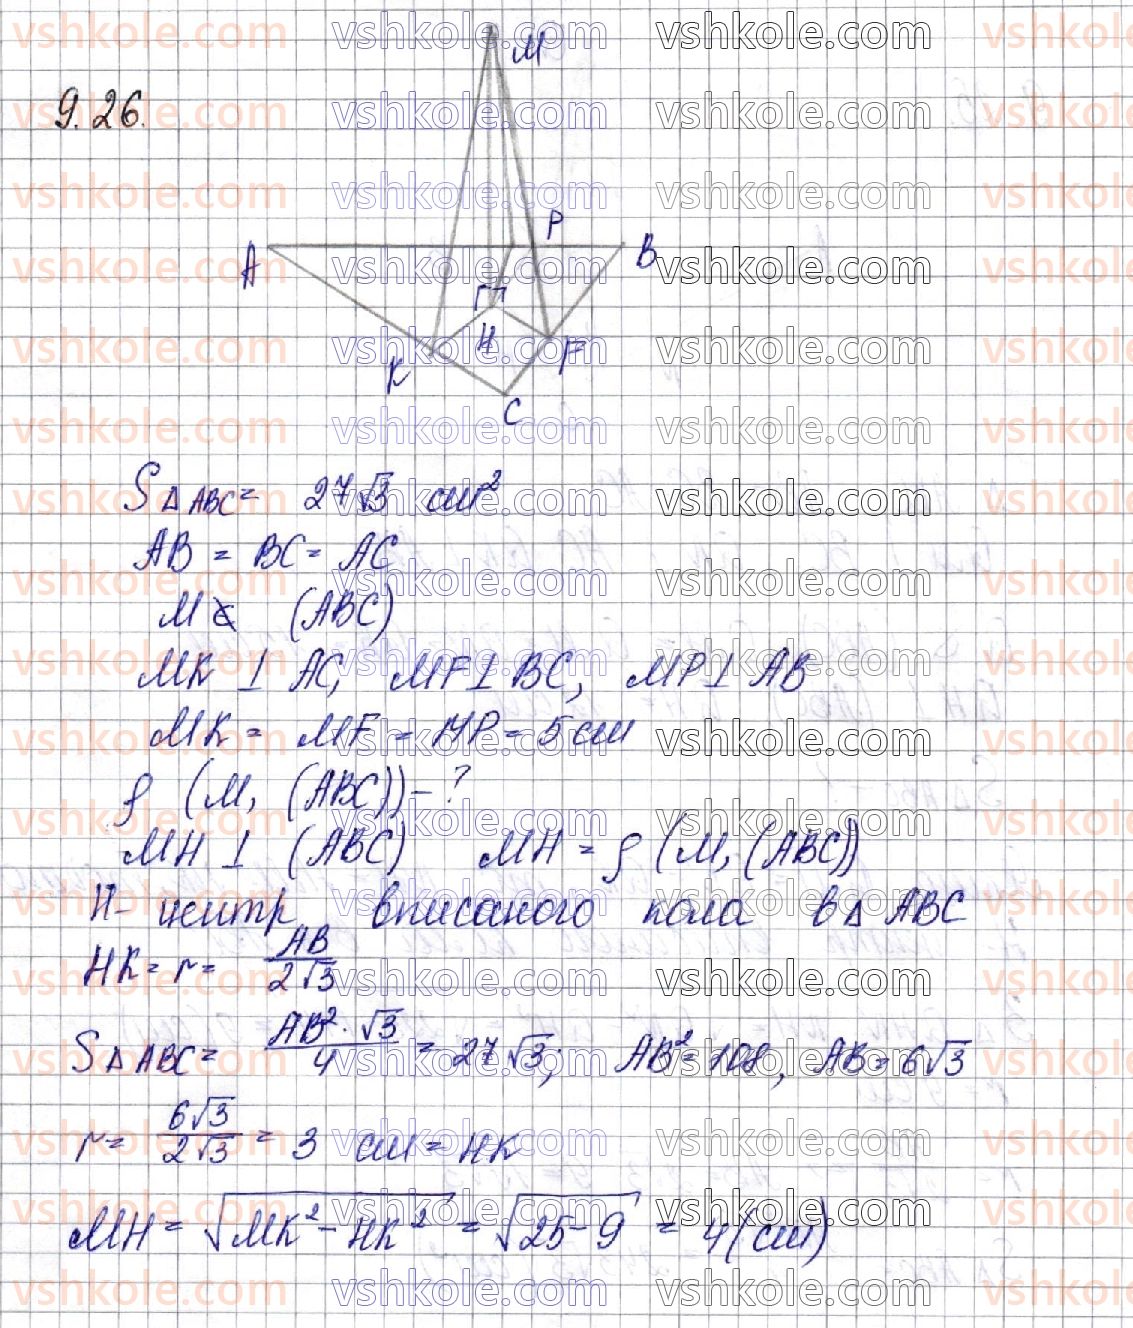 9.26.
M
A
P
B
H
K
F
C
S△ABC = 27√3 см²
AB = BC = AC
M ∉ (ABC)
MK ⊥ AC, MF ⊥ BC, MP ⊥ AB
MK = MF = MP = 5 см
ρ (M, (ABC)) - ?
MH ⊥ (ABC) MH = ρ (M, (ABC))
H - центр вписаного кола в △ ABC
HK = r = AB / 2√3
S△ABC = AB²·√3 / 4 = 27√3; AB² = 108, AB = 6√3
r = 6√3 / 2√3 = 3 см = HK
MH = √(MK² - HK²) = √(25-9) = 4 (см)
vshkole.com